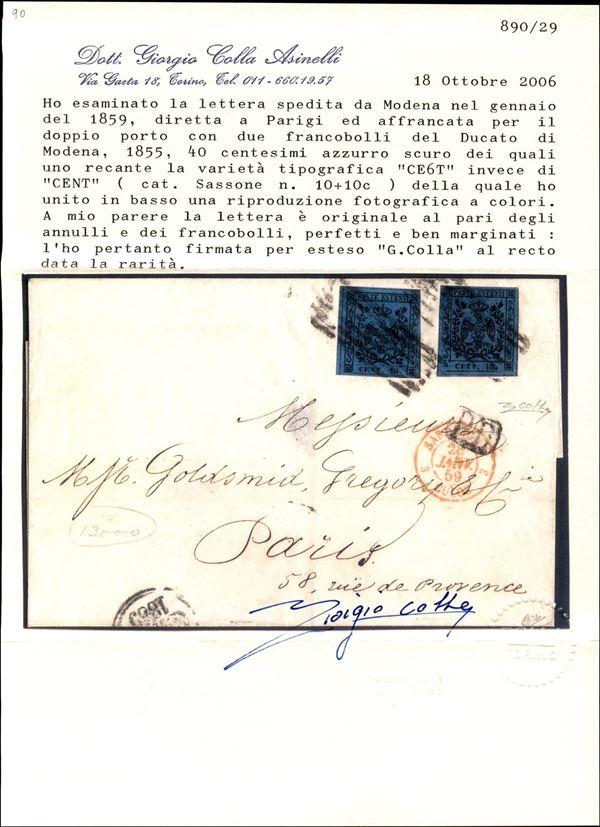 90
890/29
Dott. Giorgio Colla Asinelli
Via Gaeta 15, Torino, Tel. 011-660.19.57
18 Ottobre 2006
Ho esaminato la lettera spedita da Modena nel gennaio
del 1859, diretta a Parigi ed affrancata per il
doppio porto con due francobolli del Ducato di
Modena, 1855, 40 centesimi azzurro scuro dei quali
uno recante la varietà tipografica "CE6T" invece di
"CENT" ( cat. Sassone n. 10+10c ) della quale ho
unito in basso una riproduzione fotografica a colori.
A mio parere la lettera è originale al pari degli
annulli e dei francobolli, perfetti e ben marginati :
l'ho pertanto firmata per esteso "G.Colla" al recto
data la rarità.
POSTE ESTENSI
CENT. 40.
POSTE ESTENSI
CE6T. 40.
Messieurs
Mss. Goldsmid, Gregory & Cie
PD
JANV.
59
13000
Paris
58, rüe de Provence
Giorgio Colla
TORINO